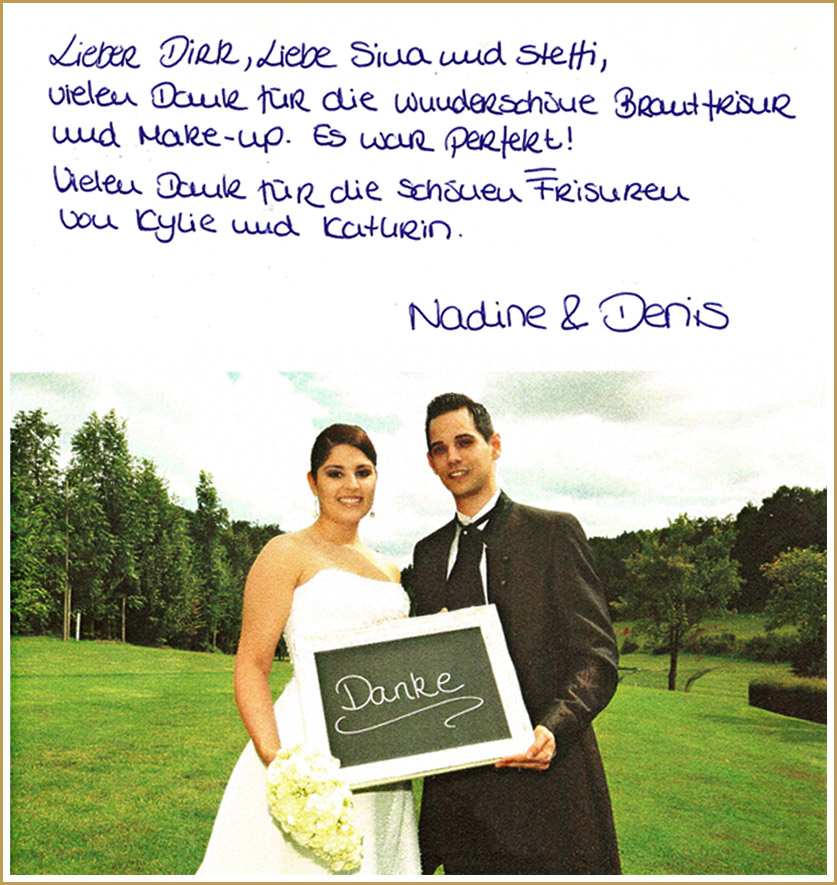 Lieber Dirk, Liebe Sina und Steffi,
vielen Dank für die wunderschöne Brautfrisur
und Make-up. Es war perfekt!
Vielen Dank für die schönen Frisuren
von Kylie und Kathrin.
Nadine & Denis
Danke